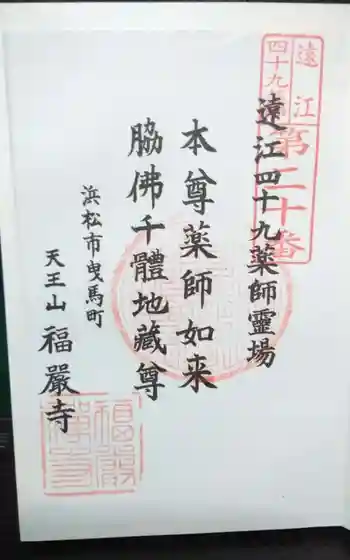 遠江
四十九
第二十番
遠江四十九薬師靈場
本尊薬師如来
脇佛千體地藏尊
浜松市曳馬町
天王山 福嚴寺
福嚴
禅寺